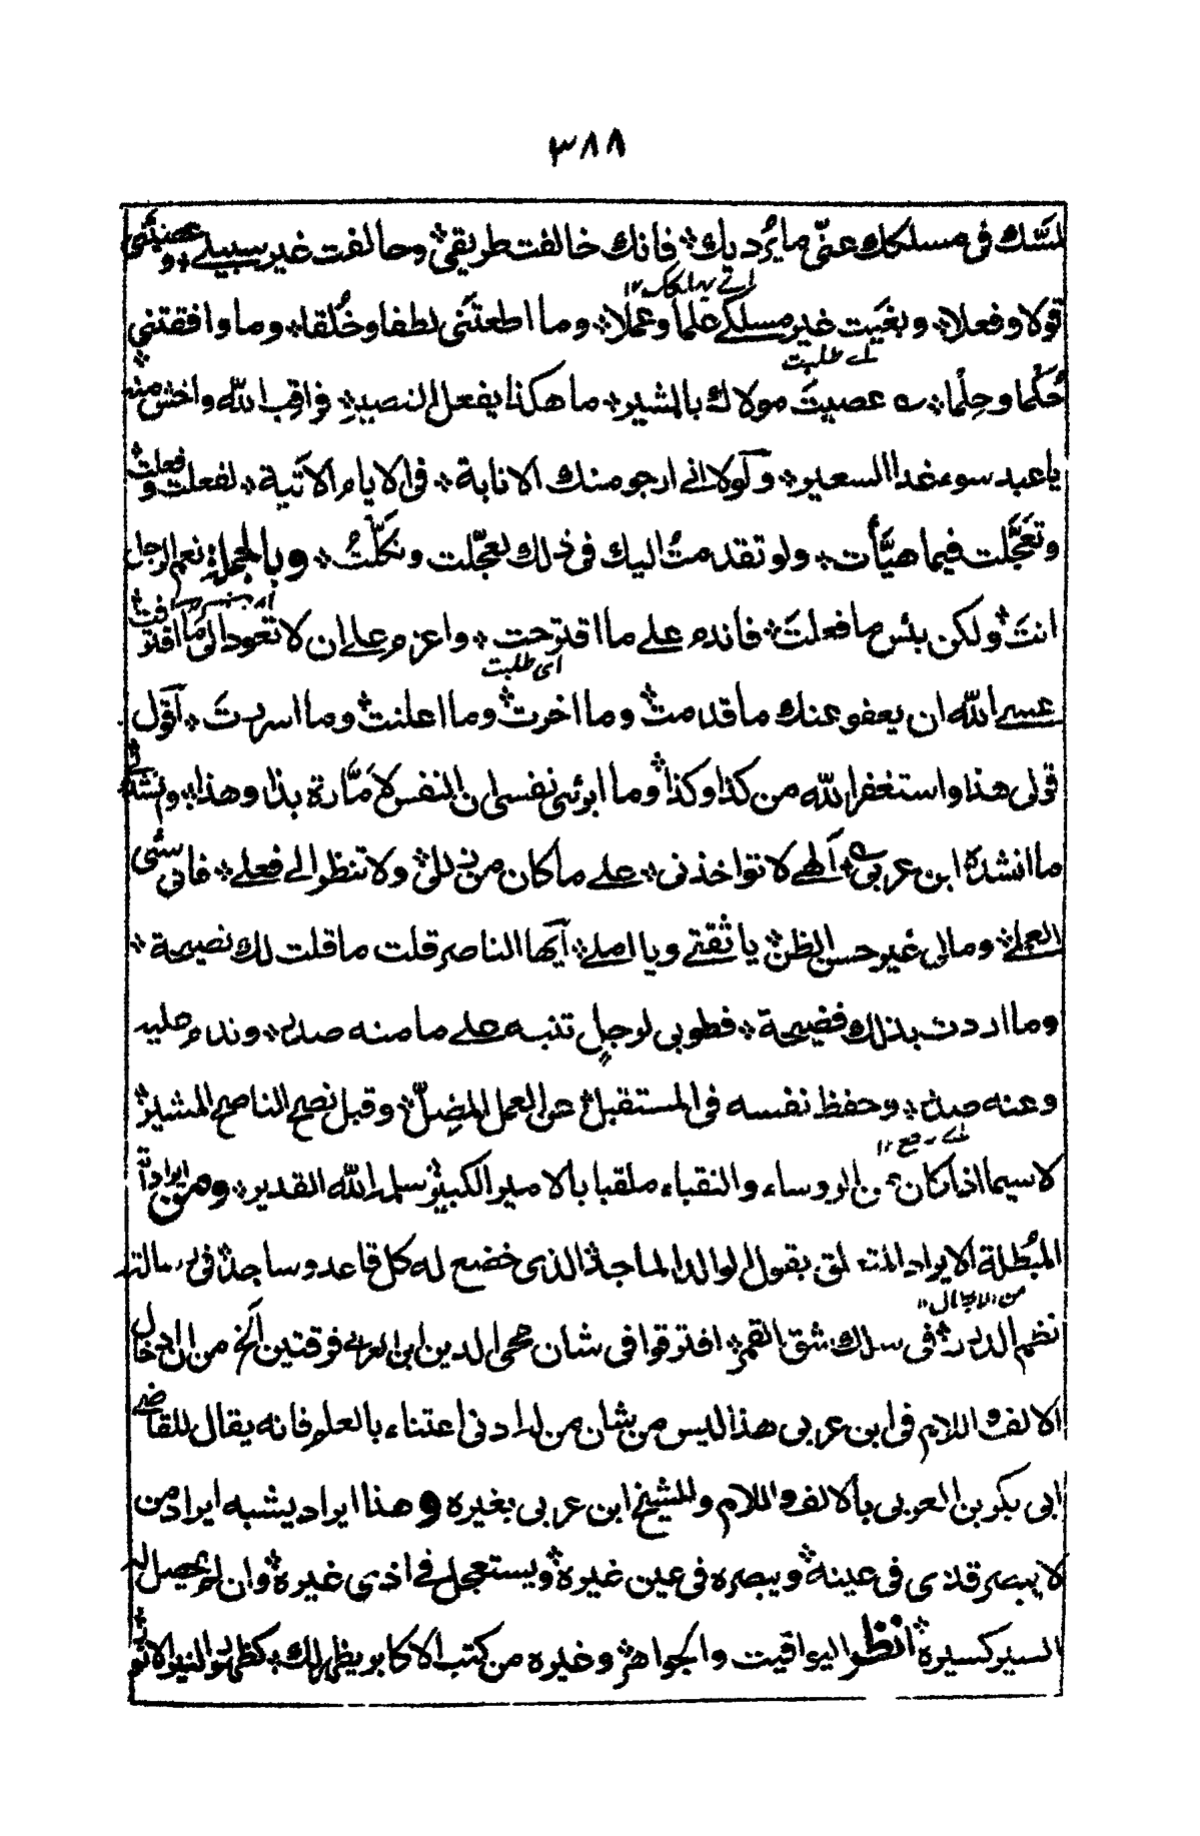 ٣٨٨
لمسّك فى مسلكك عنّى ما يُرديك ۞ فانك خالفت طريقى ۞ وحالفت غير سبيلے ۞ وعصيتَنى
اے يهلكك ١٢
قولا وفعلا ۞ وبغَيت غير مسلكے علما وعملا ۞ وما اطعتَنى لطفا وخُلقا ۞ وما وافقتنى
اے طلبت
حُكما وحِلْما ۞ ے عصيتَ مولاك بالمشير ۞ ما هكذا يفعل النصير ۞ فراقِب اللّٰه واخش منه
يا عبد سوء غدا السعير ۞ وَلولا انے ارجو منك الانابة ۞ فى الايام الاتية ۞ لفعلت وفعلت ۞
وتعَجَّلت فيما هيَّأت ۞ ولو تقدمتُ اليك فى ذلك لعجّلت ونكّلتُ ۞ وبالجملة نعم الرجل
انتَ ۞ ولكن بئس ما فعلتَ ۞ فاندم علے ما اقترحت ۞ واعزم علے ان لا تعود الى ما اقترفت ۞
اى طلبت
عسے اللّٰه ان يعفو عنك ما قدمت ۞ وما اخرت ۞ وما اعلنت ۞ وما اسررتَ ۞ اَقول
قولى هذا واستغفر اللّٰه من كذا وكذا ۞ وما ابرئ نفسى ان النفس لامَّارة بذا وهذا ۞
ما انشده ابن عربى ؎ اَلٰهے لا تواخذنى ۞ علے ما كان من زللى ۞ ولا تنظر الے فعلے ۞ فانى سئى
العملے ۞ ومالى غير حسن الظن ۞ يا ثقتے ويا املے ۞ اَيها الناصر قلت ما قلت لك نصيحة ۞
وما اردت بذلك فضيحة ۞ فطوبى لرجلٍ تنبه علے ما منه صدر ۞ وندم عليه
وعنه صدر ۞ وحفظ نفسه فى المستقبل ۞ عن العمل المضِلّ ۞ وقبل نصح الناصح المشير ۞
اے رجع ١٢
لا سيما اذا كان من الروساء والنقباء ملقبا بالامير الكبير ۞ سلمه اللّٰه القدير ۞ ومن ايراداته
المبُطلة الايراد المتعلق بقول الوالد الماجد ۞ الذى خضع له كل قاعد وساجد ۞ فى رسالته
نظم الدرر ۞ فى سلك شق القمر ۞ افترقوا فى شان محى الدين ابن العربى فرقتين الخ من ان ادخال
الالف واللام فى ابن عربى هذا ليس من شان من له ادنى اعتناء بالعلم فانه يقال للقاضے
ابى بكر بن العربى بالالف واللام وللشيخ ابن عربى بغيره وهذا ايراد يشبه ايراد من
لا يبصر قذى فى عينه ۞ ويبصره فى عين غيره ۞ ويستعجل فے اذى غيره ۞ وان لم يحصل له
السير كسيره ۞ انظر اليواقيت والجواهر ۞ وغيره من كتب الاكابر يظهر لك ۞ كظهور النير